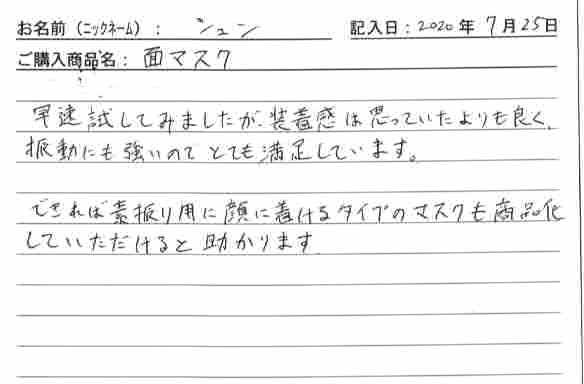 お名前（ニックネーム）： シュン 記入日：2020年 7月25日
ご購入商品名：面マスク
早速試してみましたが、装着感は思っていたよりも良く、
振動にも強いので とても満足しています。
できれば素振り用に顔に着けるタイプのマスクも商品化
していただけると助かります